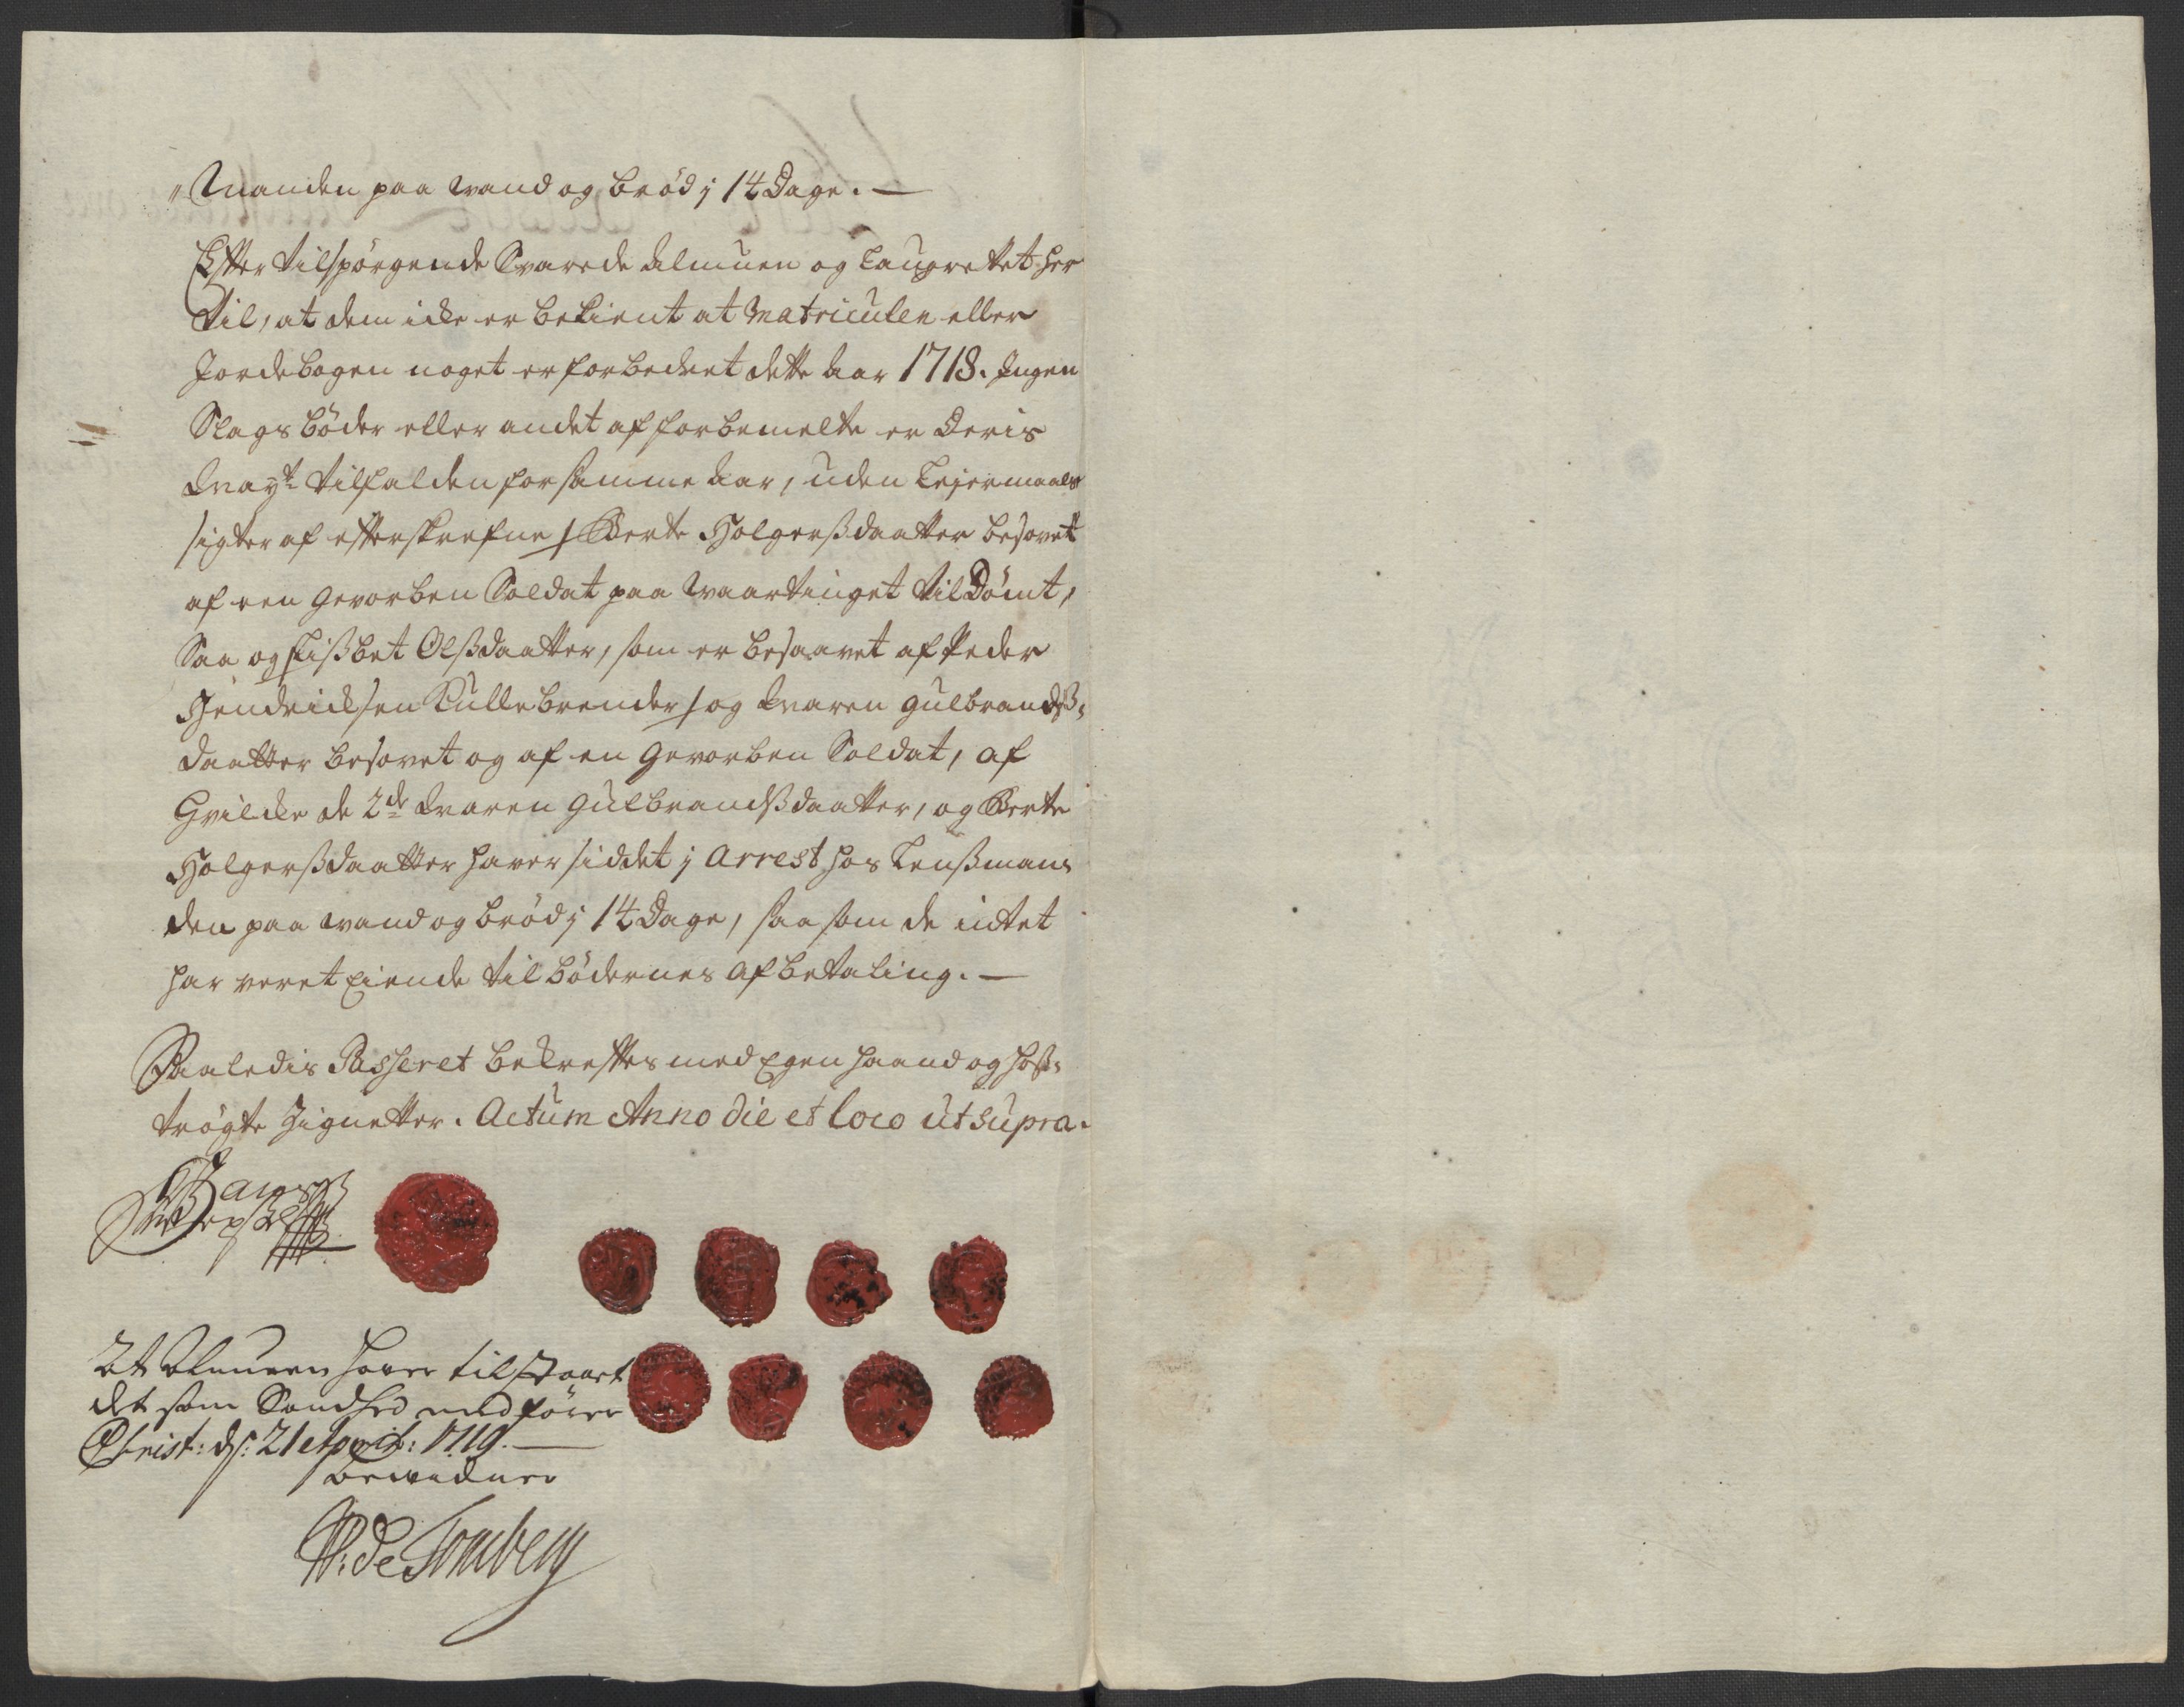 „Manden paa wand og brød j 14 Dage. —
Efter tilspørgende Svarede Almuen og Laugrettet her
til, at dem icke er bekient at Matriculen eller
Jordebogen noget er forbedret dette Aar 1718. Ingen
Slags bøder eller andet af forbemelte er Deris
Mayt tilfalden for samme Aar, uden Lejermaals
sigter af efterskrefne / Berte Holgersdaatter besovet
af een Gevorben Soldat paa waartinget til Dømt,
Saa og Lissbet Olssdaatter, som er besaavet af Peder
Hendrichsen Kullebrender / og Maren Gulbrandss=
daatter besovet og af en Gevorben Soldat, af
Hvilcke de 2de Maren Gulbrandssdaatter, og Berte
Holgerssdaatter haver siddet j Arrest hos Lenssman=
den paa wand og brød j 14 Dage, saa som de intet
har veret Eiende til bødernes Afbetaling. —
Saaledis Passeret bekreftes med Egen haand og hoss=
trøgte Zignetter. Actum Anno die et loco ut supra.
At Almuen haver tilstaaet
det som Sandhed medfører
Christ: ds: 21 April: 1719. —
bevidner
P: de Tonsberg